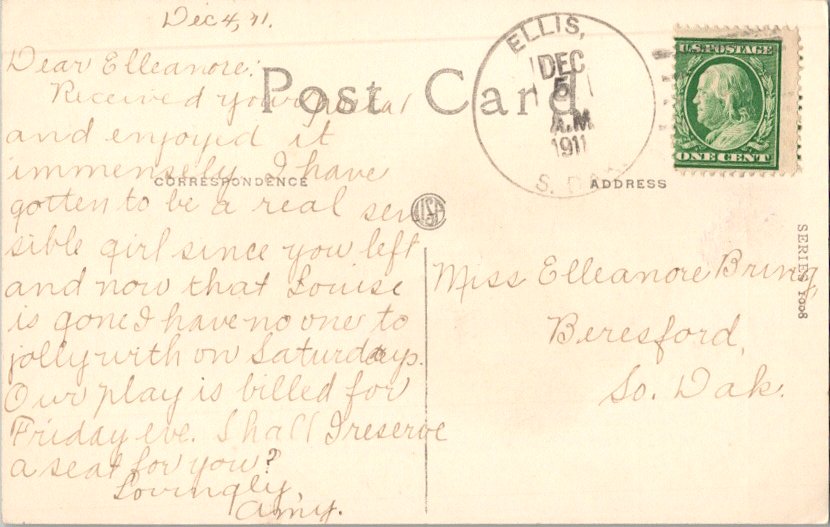 Dec 4, 11.
Dear Elleanore:
Received your postal
and enjoyed it
immensely. I have
gotten to be a real sen
sible girl since you left
and now that Louise
is gone I have no one to
jolly with on Saturdays.
Our play is billed for
Friday eve. Shall I reserve
a seat for you?
Lovingly,
Amy.
Post Card
CORRESPONDENCE
ADDRESS
ELLIS,
DEC
5
A.M
1911
S. DAK.
U.S. POSTAGE
ONE CENT
Miss Elleanore Bring
Beresford,
So. Dak.
SERIES 1008